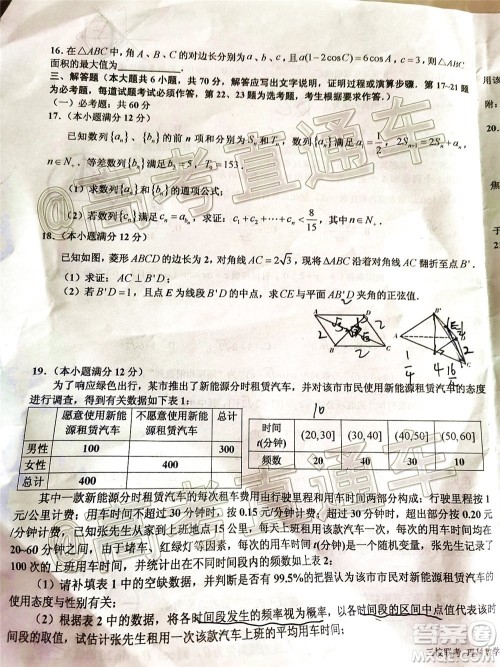 16. 在△ABC中,角A、B、C的对边长分别为a、b、c,且a(1-2cosC)=6cosA,c=3,则△ABC
面积的最大值为
三、解答题(本大题共6小题,共70分,解答应写出文字说明,证明过程或演算步骤.第17~21
为必考题,每道试题考生必须作答、第22、23题为选考题,考生根据要求作答.)
(一)必考题:共60分
17.(本小题满分12分)
已知数列{aₙ}、{bₙ}的前n项和分别为Sₙ和Tₙ,数列{aₙ}满足a₁=1/2,2Sₙ₊₁=Sₙ
n∈N₊.等差数列{bₙ}满足b₃=5,T₉=153.
(1)求数列{aₙ}和{bₙ}的通项公式;
(2)若数列{cₙ}满足 求证:c₁+c₂+⋯+cₙ<8/15,其中n∈N₊.
18.(本小题满分12分)
已知如图,菱形ABCD的边长为2,对角线AC=2√3,现将△ABC沿着对角线AC翻折至点B'.
(1)求证:AC⊥B'D;
(2)若B'D=1,且点E为线段B'D的中点,求CE与平面AB'D夹角的正弦值.
19.(本小题满分12分)
为了响应绿色出行,某市推出了新能源分时租赁汽车,并对该市市民使用新能源租赁汽车的态度
进行调查,得到有关数据如下表1:
愿意使用新能源租赁汽车 不愿意使用新能源租赁汽车 总计
男性 100 300
女性 400
总计 400
时间t(分钟) (20,30] (30,40] (40,50] (50,60]
频数 20 40 30 10
其中一款新能源分时租赁汽车的每次租车费用由行驶里程和用车时间两部分构成:行驶里程按1
元/公里计费;用车时间不超过30分钟时,按0.15元/分钟计费;超过30分钟时,超出部分按0.20元
/分钟计费.已知张先生从家到上班地点15公里,每天上班租用该款汽车一次,每次的用车时间均在
20~60分钟之间,由于堵车、红绿灯等因素,每次的用车时间t(分钟)是一个随机变量,张先生记录了
100次的上班用车时间,并统计出在不同时间段内的频数如下表2:
(1)请补填表1中的空缺数据,并判断是否有99.5%的把握认为该市市民对新能源租赁汽车的
使用态度与性别有关;
(2)根据表2中的数据,将各时间段发生的频率视为概率,以各时间段的区间中点值代表该时
间段的取值,试估计张先生租用一次该款汽车上班的平均用车时间;
高考直通车
答案圈